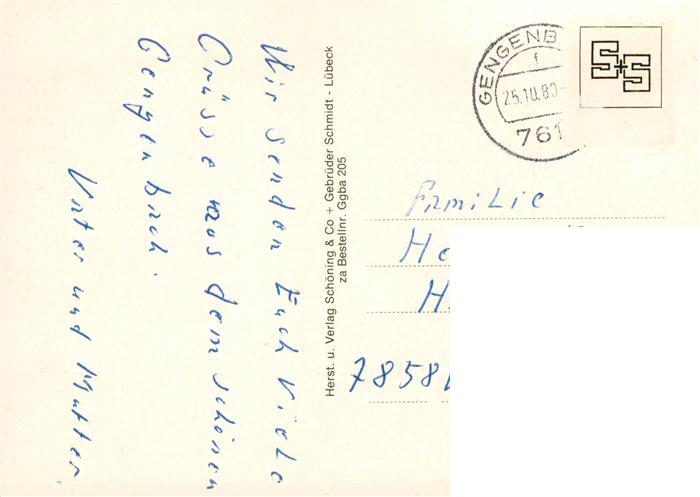 Wir senden Euch viele
Grüsse aus dem schönen
Gengenbach.
Vater und Mutter
Herst. u. Verlag Schöning & Co + Gebrüder Schmidt - Lübeck
za Bestellnr. Ggba 205
GENGENB
f
25.10.80-
761
S+S
Familie
He
H
7858